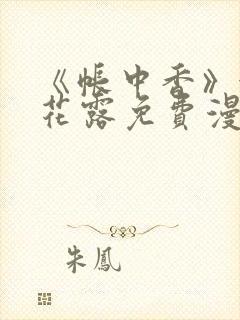 《帐中香》
花露免费漫
朱鳳